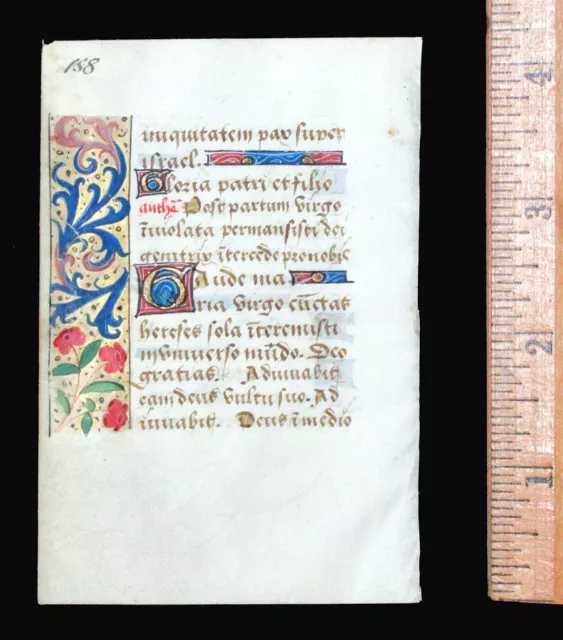 158
iniquitatem pax super
israel.
Gloria patri et filio
antha Post partum virgo
īviolata permansisti dei
genitrix ītercede pronobis
Gaude ma
ria virgo cūctas
hereses sola īteremisti
inuniverso mūdo. Deo
gratias. Adiuvabit
eam deus vultu suo. Ad
iuvabit. Deus ī medio
4
3
2
1